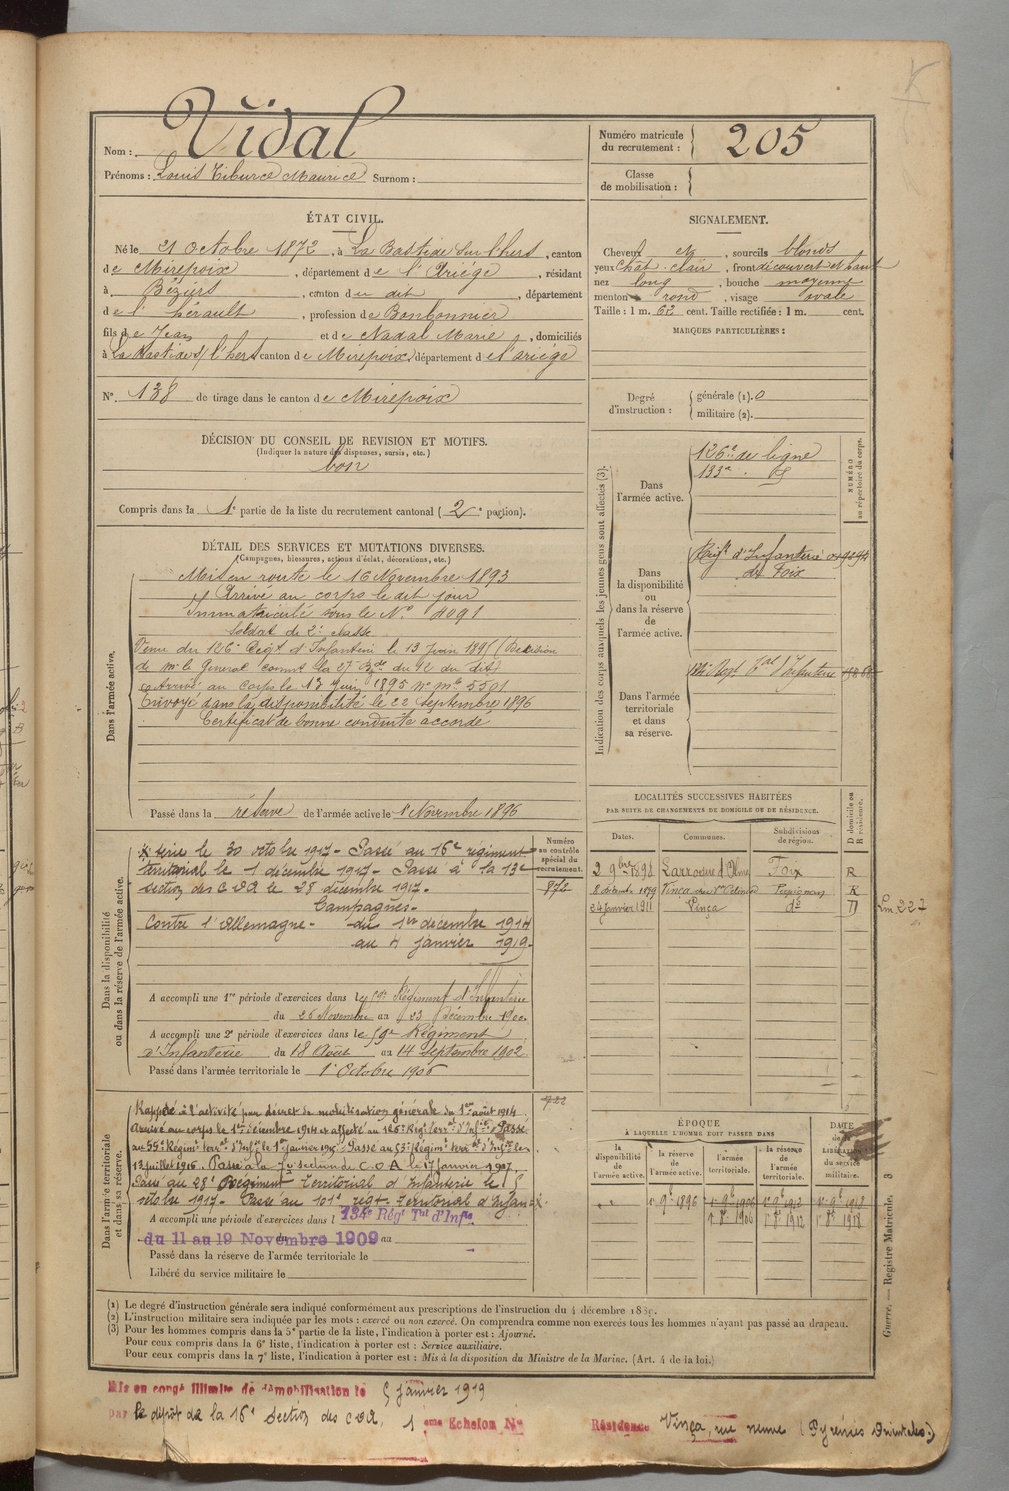 Vidal
Nom :
Prénoms : Louis Tiburce Maurice Surnom :
Numéro matricule du recrutement : 205
Classe de mobilisation :
ÉTAT CIVIL.
Né le 21 Octobre 1872, à La Bastide sur l'hers, canton
de Mirepoix, département de l'Ariège, résidant
à Béziers, canton du dit, département
de l'hérault, profession de Bonbonnier
fils de Jean et de Nadal Marie, domiciliés
à La Bastide s/ l'hers canton de Mirepoix, département de l'ariège
N° 138 de tirage dans le canton de Mirepoix
DÉCISION DU CONSEIL DE REVISION ET MOTIFS.
(Indiquer la nature des dispenses, sursis, etc.)
bon
Compris dans la 1e partie de la liste du recrutement cantonal (2e portion).
SIGNALEMENT.
Cheveux et, sourcils blonds
yeux chât. clair, front découvert et haut
nez long, bouche moyenne
menton rond, visage ovale
Taille : 1 m. 62 cent. Taille rectifiée : 1 m. cent.
MARQUES PARTICULIÈRES :
Degré d'instruction : générale (1). 0
militaire (2).
DÉTAIL DES SERVICES ET MUTATIONS DIVERSES.
(Campagnes, blessures, actions d'éclat, décorations, etc.)
Dans l'armée active.
Mis en route le 16 Novembre 1893
Arrivé au corps le dit jour
Immatriculé sous le N° 4091
Soldat de 2e classe
Venu du 126e Régt d'Infanterie le 13 Juin 1895 (Décision
de Mr le Général commt la 27e Bde du 12 du dit)
Arrivé au corps le 13 Juin 1895 N° mle 5501
Envoyé dans la disponibilité le 22 Septembre 1896
Certificat de bonne conduite accordé
Passé dans la réserve de l'armée active le 1er Novembre 1896
Indication des corps auxquels les jeunes gens sont affectés (3).
NUMÉRO au répertoire du corps.
Dans l'armée active.
126e de ligne
133e . d°
Dans la disponibilité ou dans la réserve de l'armée active.
Régt d'Infanterie
de Foix
Dans l'armée territoriale et dans sa réserve.
LOCALITÉS SUCCESSIVES HABITÉES
PAR SUITE DE CHANGEMENTS DE DOMICILE OU DE RÉSIDENCE.
Dates. Communes. Subdivisions de région. D domicile ou R résidence.
2 9bre 1898 Foix R
8 décembre 1899 Vinça Perpignan R
24 janvier 1911 Vinça d° D
Dans la disponibilité ou dans la réserve de l'armée active.
Numéro au contrôle spécial du recrutement.
872
le 30 octobre 1917 - Passé au 16e régiment
territorial le 1 décembre 1917 - Passé à la 13e
section des C O A le 28 décembre 1917 -
Campagnes -
Contre l'Allemagne - du 1er décembre 1914
au 4 janvier 1919 -
A accompli une 1re période d'exercices dans le 59e Régiment d'Infanterie
du 26 Novembre au 23 Décembre 1900
A accompli une 2e période d'exercices dans le 59e Régiment
d'Infanterie du 18 Août au 14 Septembre 1902
Passé dans l'armée territoriale le 1er Octobre 1906
Dans l'armée territoriale et dans sa réserve.
722
Rappelé à l'activité par décret de mobilisation générale du 1er août 1914
Arrivé au corps le 1er décembre 1914 et affecté au 126e Régt terr. d'Infie. Passé
au 55e Régimt terral d'Infie le 1er janvier 1915. Passé au 53e Régimt terral d'Infie le
12 juillet 1916. Passé à la section de C.O.A le 17 janvier 1917.
Passé au 28e Régiment Territorial d'Infanterie le 15
octobre 1917 - Passé au 101e régt. Territorial d'Infanterie
A accompli une période d'exercices dans l 134e Régt Tal d'Infie
du 11 au 19 Novembre 1909 au
Passé dans la réserve de l'armée territoriale le
Libéré du service militaire le
ÉPOQUE
À LAQUELLE L'HOMME DOIT PASSER DANS
la disponibilité de l'armée active. la réserve de l'armée active. l'armée territoriale. la réserve de l'armée territoriale.
DATE de la LIBÉRATION du service militaire.
1er 9bre 1896 1er 9bre 1906 1er 9bre 1912 1er 9bre 1918
1er 8bre 1906 1er 8bre 1912 1er 8bre 1918
Guerre. — Registre Matricule. 3
(1) Le degré d'instruction générale sera indiqué conformément aux prescriptions de l'instruction du 4 décembre 1889.
(2) L'instruction militaire sera indiquée par les mots : exercé ou non exercé. On comprendra comme non exercés tous les hommes n'ayant pas passé au drapeau.
(3) Pour les hommes compris dans la 5e partie de la liste, l'indication à porter est : Ajourné.
Pour ceux compris dans la 6e liste, l'indication à porter est : Service auxiliaire.
Pour ceux compris dans la 7e liste, l'indication à porter est : Mis à la disposition du Ministre de la Marine. (Art. 4 de la loi.)
Mis en congé illimité de démobilisation le 5 janvier 1919
par le dépôt de la 16e section des C O A, 1 eme Echelon N°
Résidence Vinça, rue neuve (Pyrénées Orientales.)